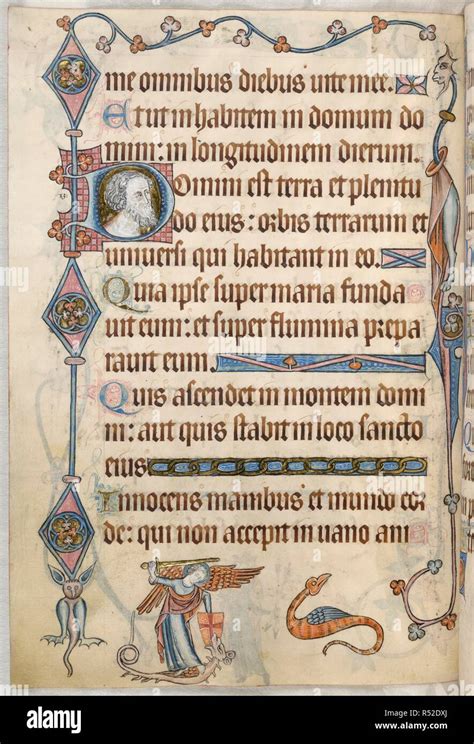 me omnibus diebus uite mee.
Et ut inhabitem in domum do
mini: in longitudinem dierum.
Domini est terra et plenitu
do eius: orbis terrarum et
uniuersi qui habitant in eo.
Quia ipse super maria funda
uit eum: et super flumina prepa
rauit eum.
Quis ascendet in montem domi
ni: aut quis stabit in loco sancto
eius
Innocens manibus et mundo cor
de: qui non accepit in uano ani
alamy
Image ID: R52DXJ
www.alamy.com